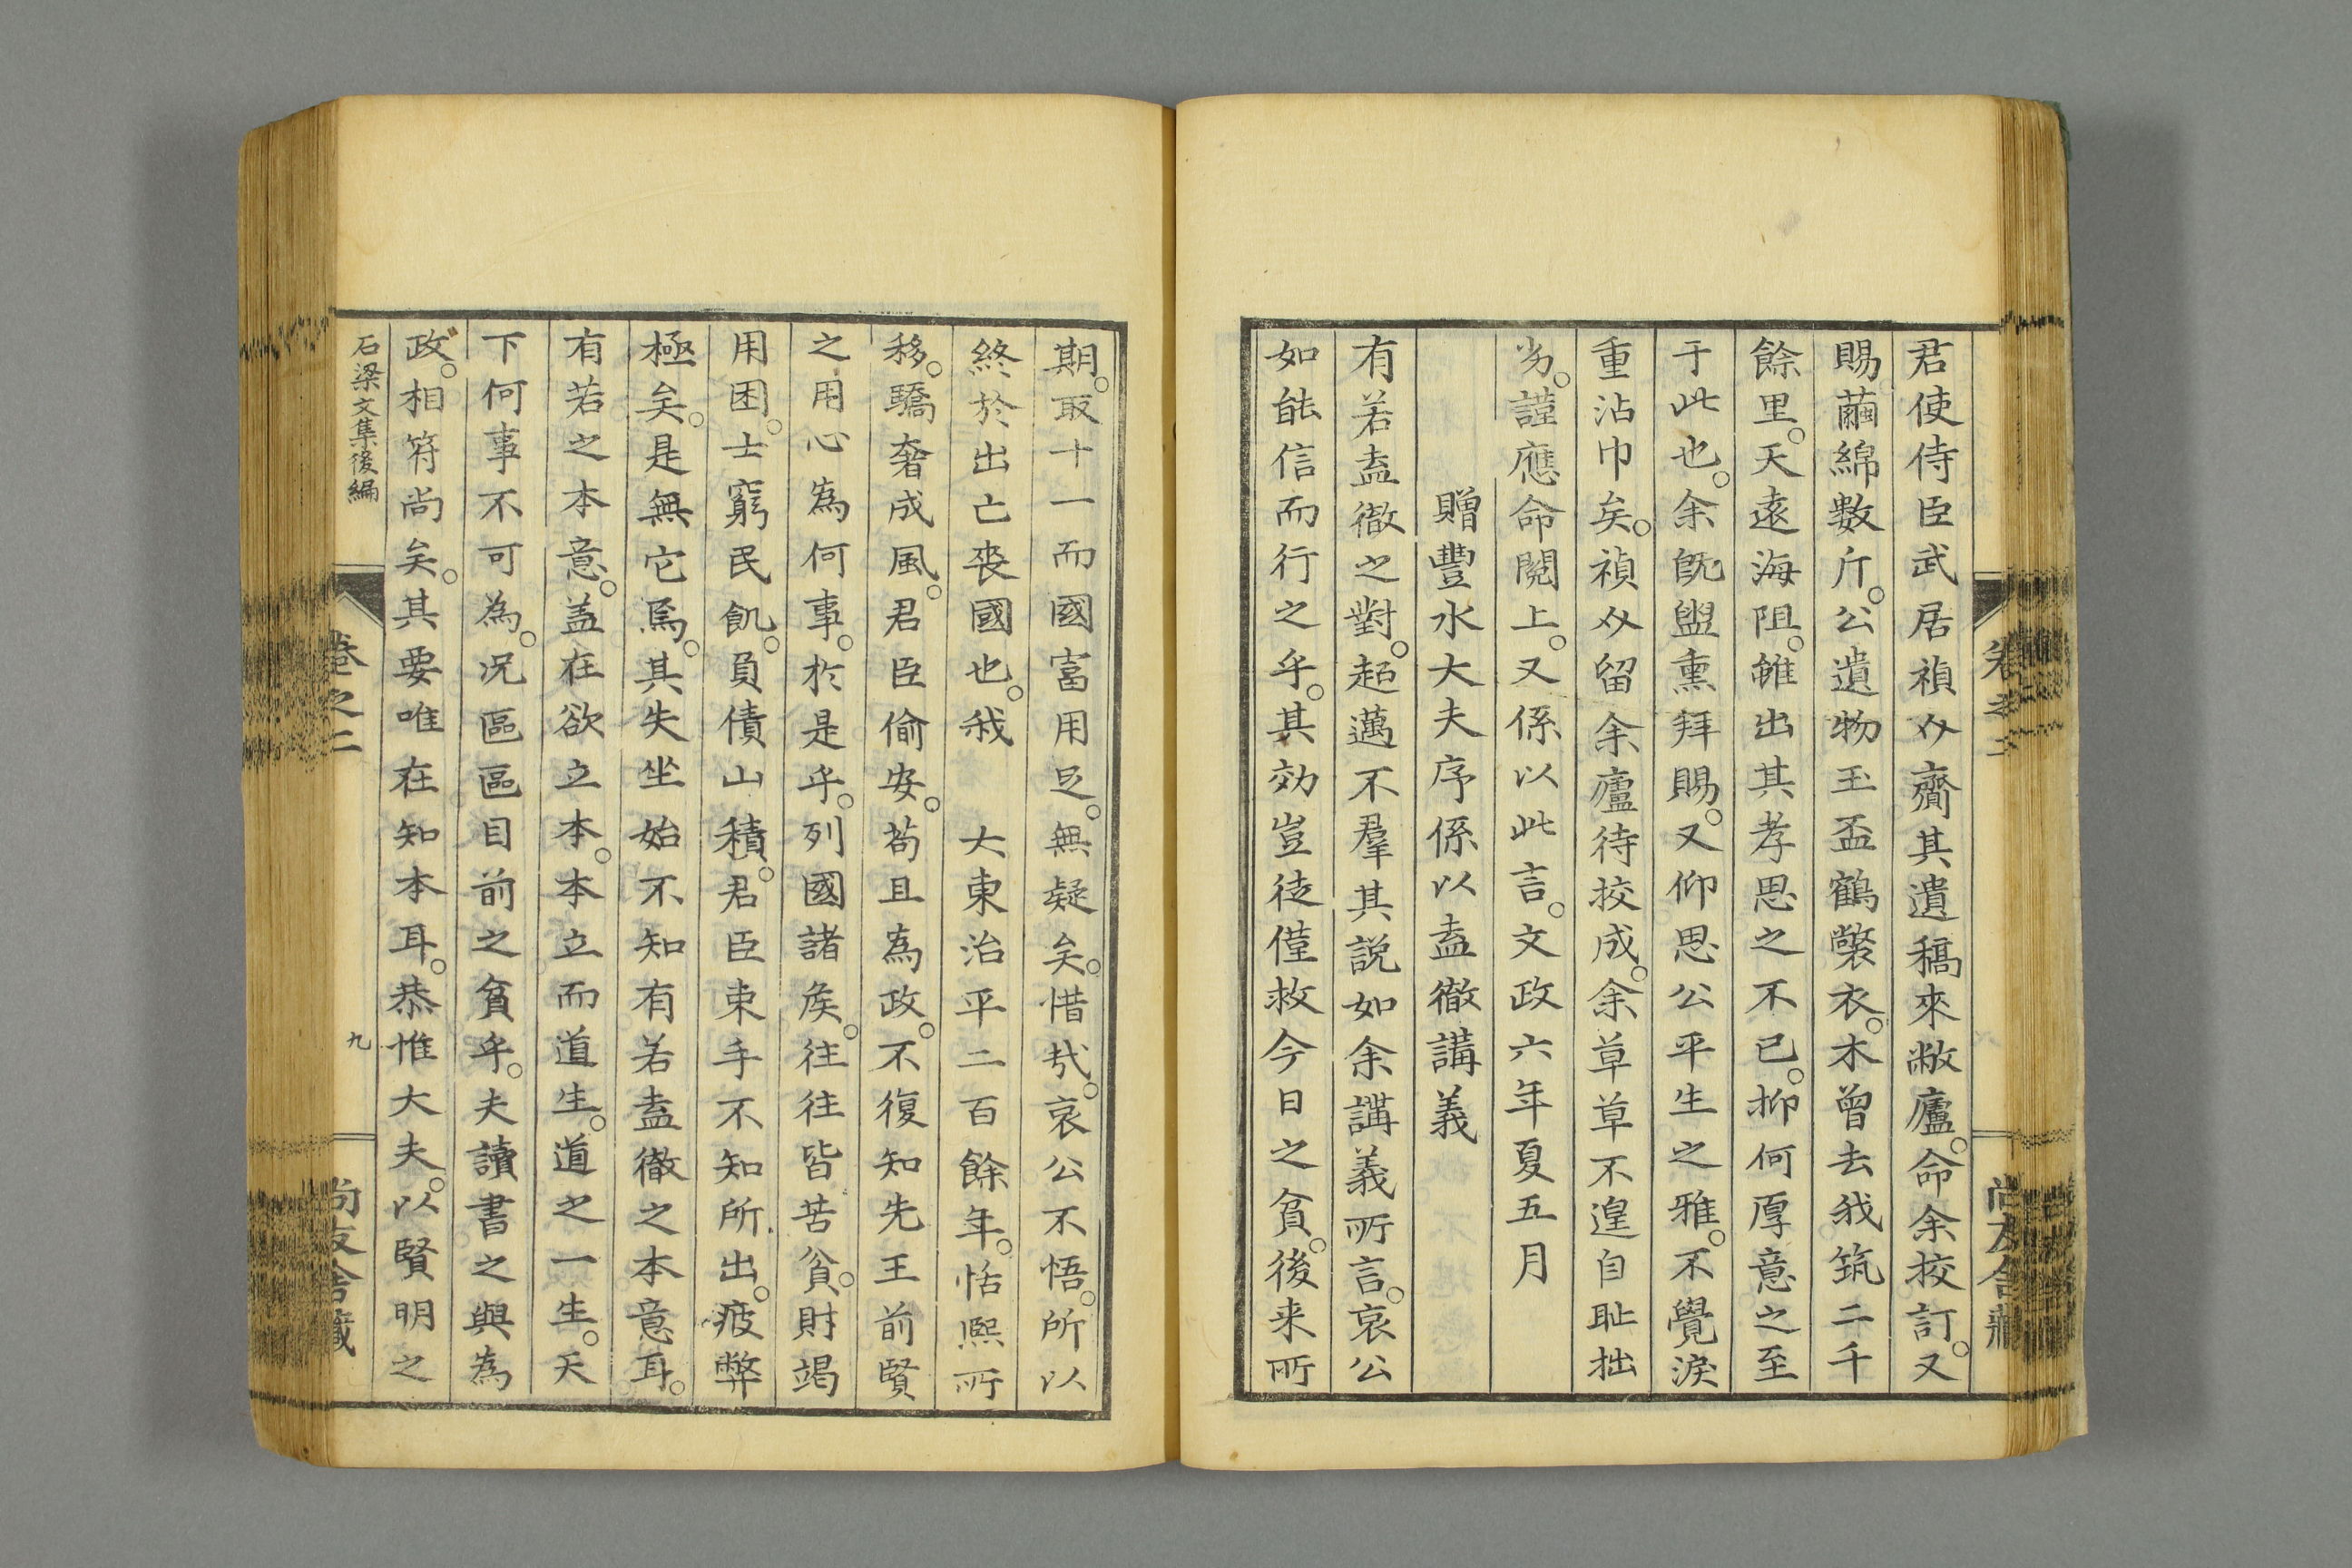 君使侍臣武居禎㕛齎其遺稿來敝廬。命余挍訂。又
賜繭綿數斤。公遺物玉盃鶴氅衣。木曾去我筑二千
餘里。天遠海阻。雖出其孝思之不已。抑何厚意之至
于此也。余旣盥熏拜賜。又仰思公平生之雅。不覺淚
重沾巾矣。禎㕛留余廬待挍成。余草草不遑自耻拙
劣。謹應命閱上。又係以此言。文政六年夏五月
贈豐水大夫序係以盍徹講義
有若盍徹之對。超邁不羣其説如余講義所言。哀公
如能信而行之乎。其効豈徒僅救今日之貧。後来所
期。取十一而國富用足。無疑矣。惜哉。哀公不悟。所以
終於出亡喪國也。我　大東治平二百餘年。恬熈所
移。驕奢成風。君臣偷安。苟且為政。不復知先王前賢
之用心為何事。於是乎。列國諸矦。往往皆苦貧。財竭
用困。士窮民飢。負債山積。君臣束手不知所出。疲弊
極矣。是無它焉。其失坐始不知有若盍徹之本意耳。
有若之本意。盖在欲立本。本立而道生。道之一生。天
下何事不可為。况區區目前之貧乎。夫讀書之與為
政。相符尚矣。其要唯在知本耳。恭惟大夫。以賢明之
石梁文集後編
卷之二
九
尚友舎藏